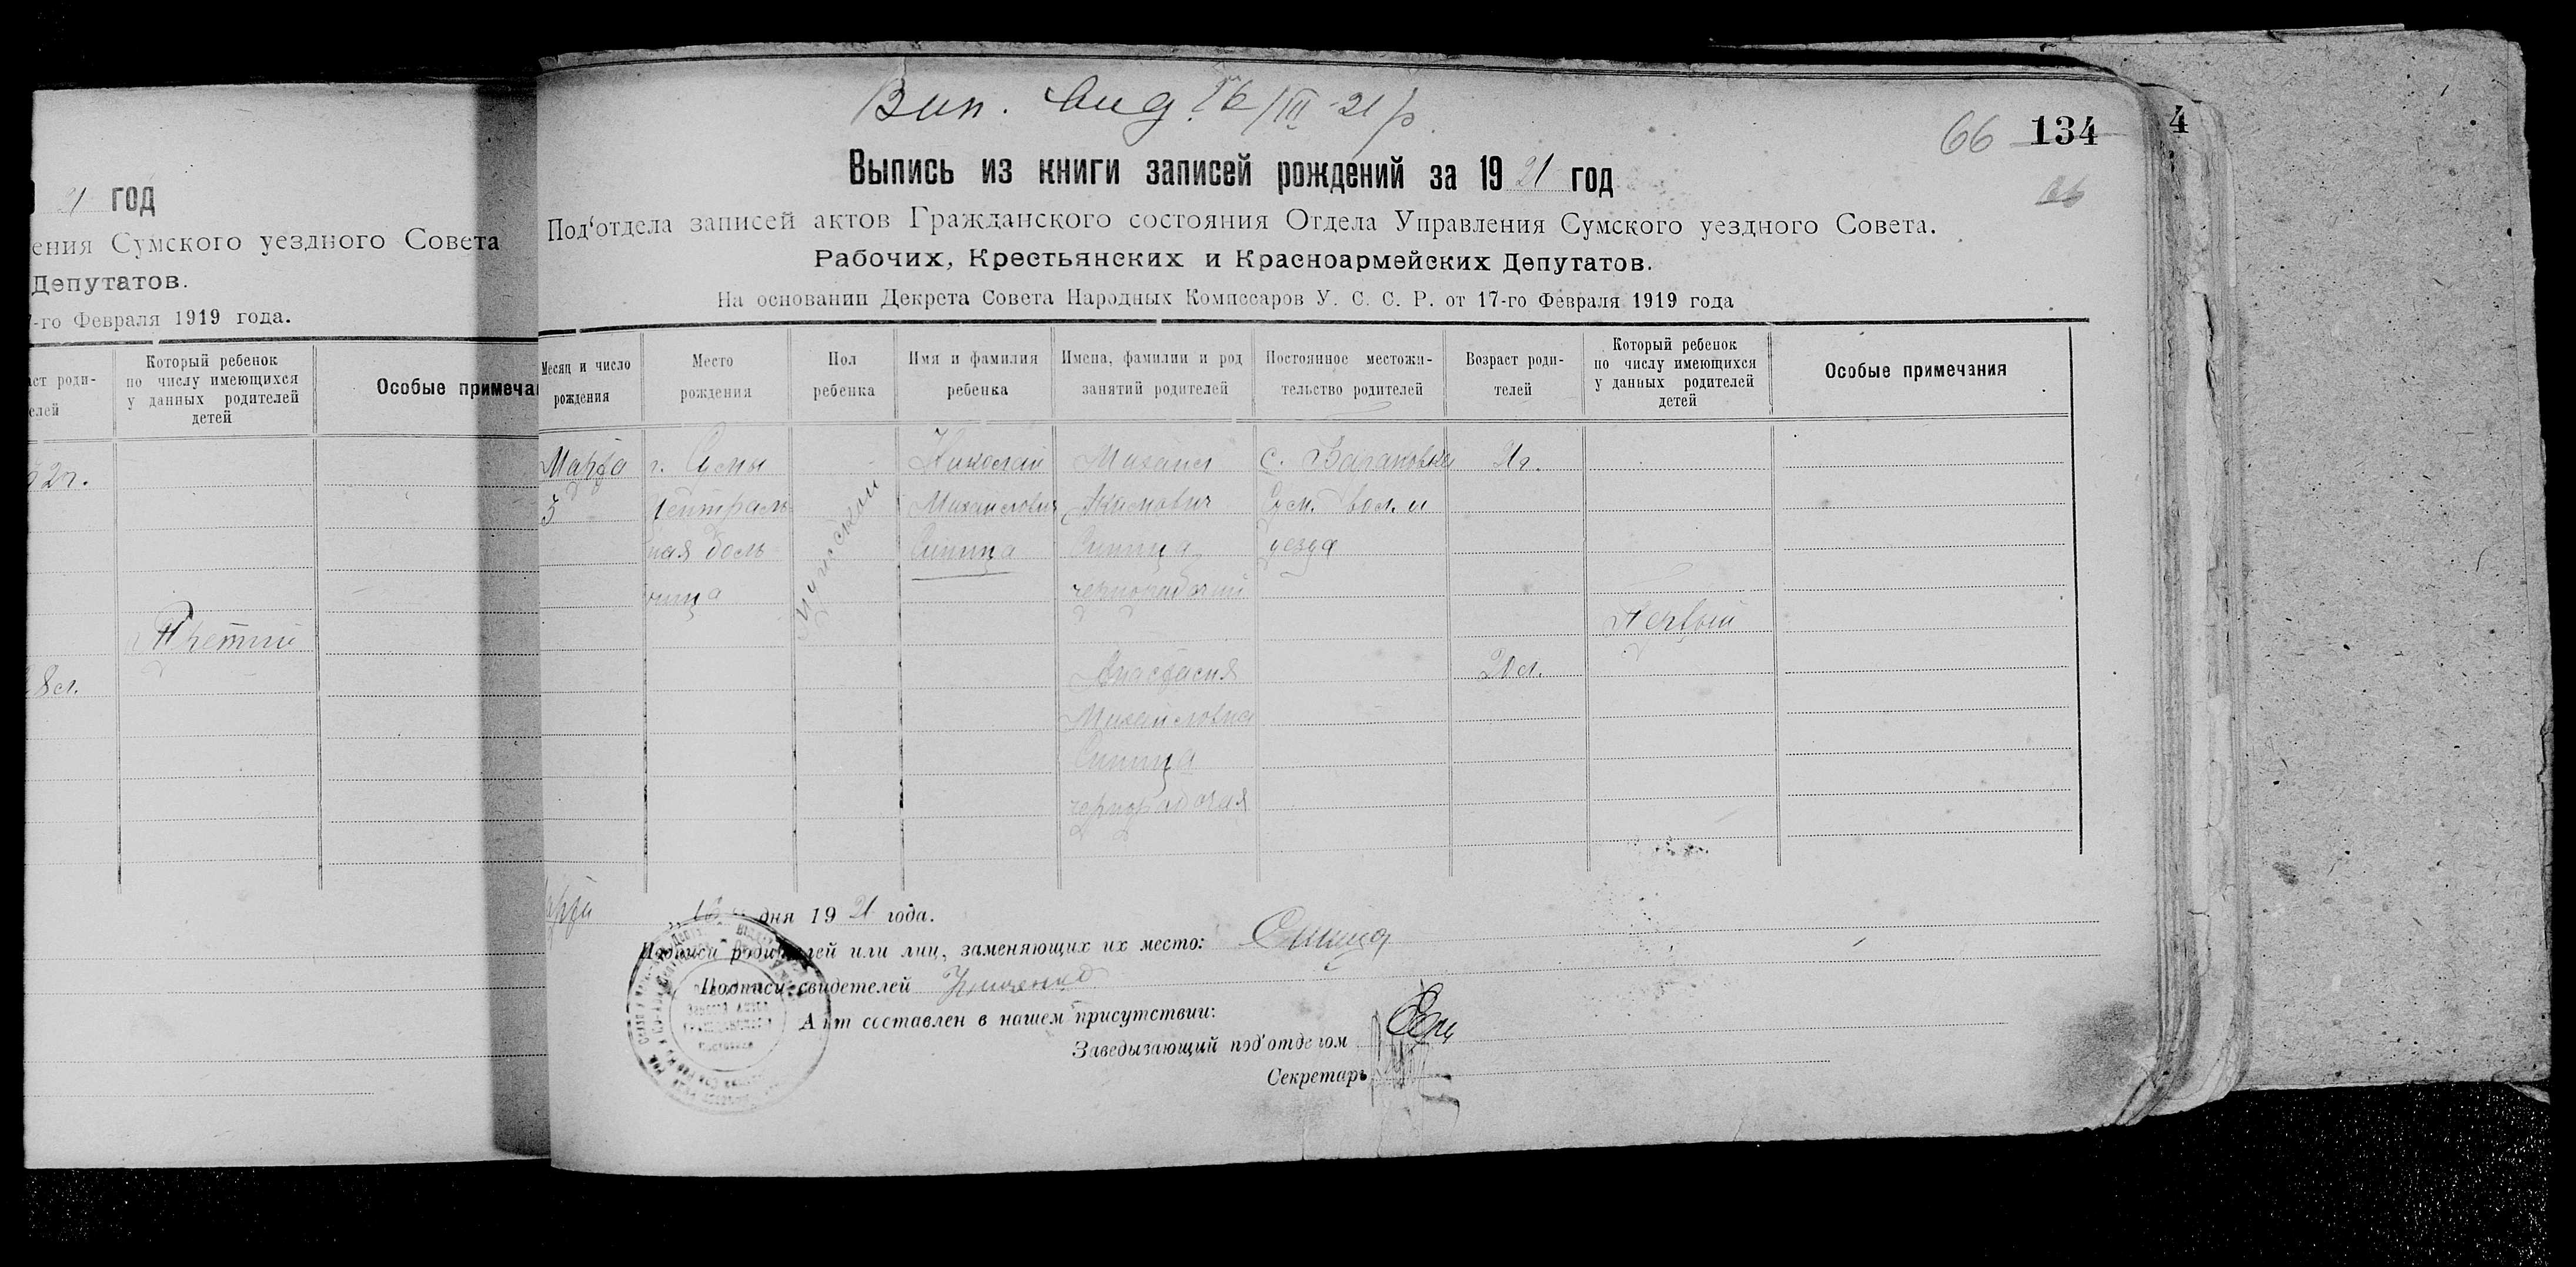 21 год
ения Сумского уездного Совета
Депутатов.
7-го Февраля 1919 года.
аст роди-
елей
Который ребенок
по числу имеющихся
у данных родителей
детей
Особые примечан
32г.
Третий
28л.
Вип. вид. 16/III-21 р.
66 134
4
66
Выпись из книги записей рождений за 1921 год
Под'отдела записей актов Гражданского состояния Отдела Управления Сумского уездного Совета.
Рабочих, Крестьянских и Красноармейских Депутатов.
На основании Декрета Совета Народных Комиссаров У. С. С. Р. от 17-го Февраля 1919 года
Месяц и число
рождения
Место
рождения
Пол
ребенка
Имя и фамилия
ребенка
Имена, фамилии и род
занятий родителей
Постоянное местожи-
тельство родителей
Возраст роди-
телей
Который ребенок
по числу имеющихся
у данных родителей
детей
Особые примечания
Марта
г. Сумы
Централь-
ная боль-
ница
мужской
Николай
Михайлович
Синица
Михаил
Акимович
Синица
чернорабочий
Анастасия
Михайловна
Синица
чернорабочая
с. Барановка
Сум. вол. и
уезда
21г.
20л.
Первый
дня 1921 года.
Подписи родителей или лиц, заменяющих их место: Синица
Подписи свидетелей
Акт составлен в нашем присутствии:
Заведывающий под'отделом
Секретарь